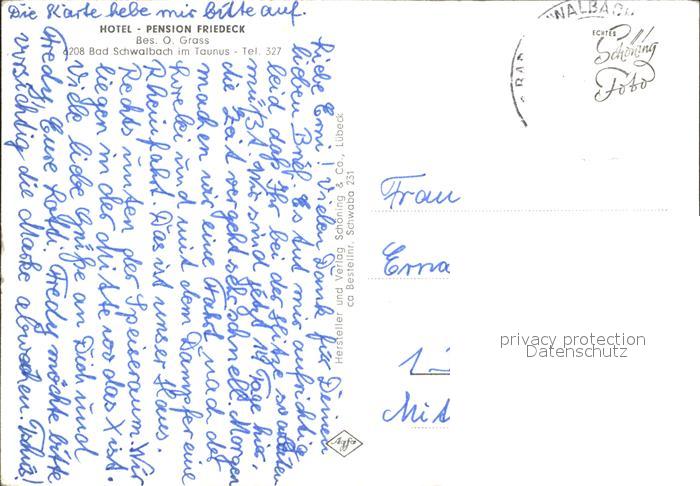 Die Karte hebe mir bitte auf.
HOTEL - PENSION FRIEDECK
Bes. O. Grass
6208 Bad Schwalbach im Taunus - Tel. 327
Liebe Erni! Vielen Dank für Deinen
lieben Brief. Es tut mir aufrichtig
leid daß Ihr bei der Hitze so arbeiten
müßt. Wir sind jetzt 14 Tage hier,
die Zeit vergeht sehr schnell. Morgen
machen wir eine Fahrt nach der
Lorelei und mit dem Dampfer eine
Rheinfahrt. Das ist unser Haus.
Rechts unten der Speiseraum. Wir
liegen in der Mitte wo das X ist.
Viele liebe Grüße an Dich und
Fredy Eure Lotti. Fredy möchte bitte
vorsichtig die Marke abweichen. Tschüß!
Hersteller und Verlag Schöning & Co., Lübeck
ca Bestellnr. Schwaba 231
Agfa
WALBACH
ECHTES
Schöning
Foto
Frau
Erna
Mit
privacy protection
Datenschutz